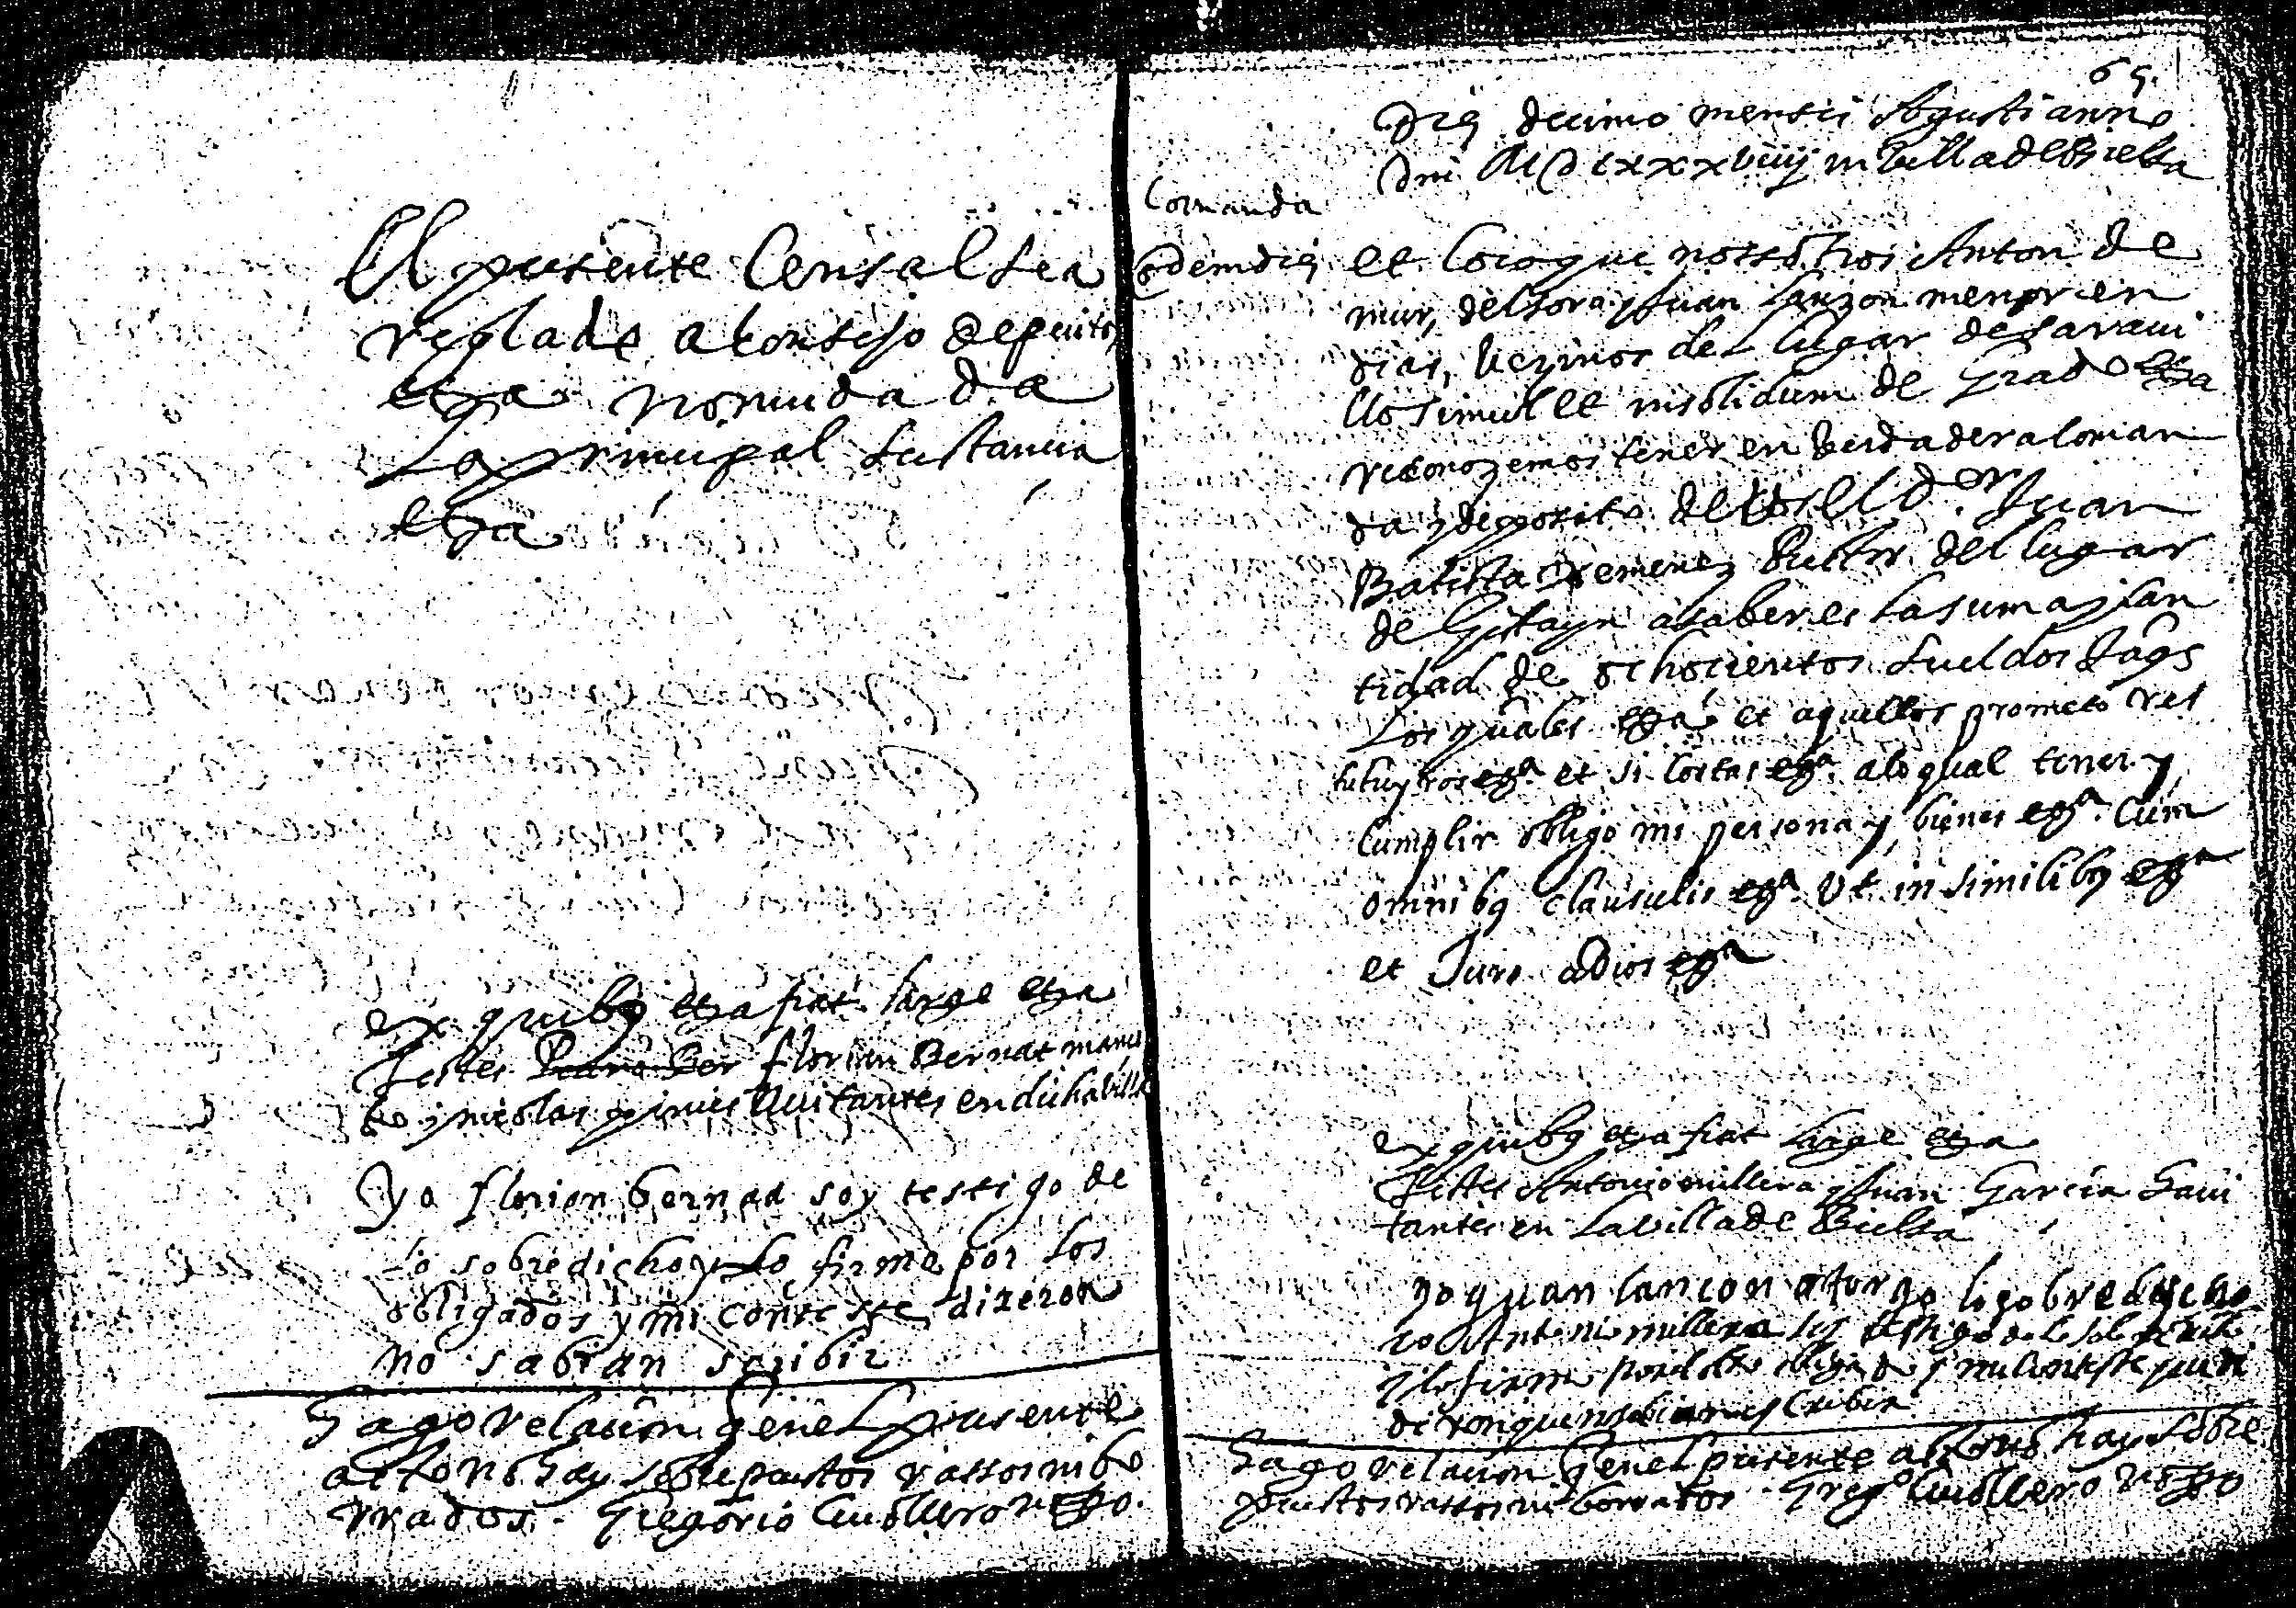 El presente Censal sea
reglado a consejo de peritos
etza no mudada
La principal sustancia
etza
ex quibq etza fiat large etza
Testes florian Bernat mance
bo y nicolas habitantes en dicha villa
yo florian bernad soy testigo de
lo sobredicho y lo firme por los
obligados y mi conteste dixeron
no sabian scribir
Hago relacion q en el presente
acto no hay sobrepuestos rassos ni bo
rrados. Gregorio not.
65.
Die decimo mensis Agusti anno
Dni MDLxxxviiij in Villa de Bielsa
Comanda
Eodem die
et Como que nossotros Anton de
mur, del sora y Juan lanzon menor en
dias, vezinos del lugar de saraui
llo simul et insolidum de grado etza
reconozemos tener en verdadera coman
da y deposito de vos el Juan
Batista Xemenez Rector del lugar
de Gistayn a saber es la suma y can
tidad de ochocientos sueldos Jaqs
Los quales etza et aquellos prometo res
tituyros etza et si costas etza a lo qual tener y
Cumplir obligo mi persona y bienes etza Cum
omnibq clausulis etza ut in similibq etza
et Juro a Dios etza
ex quibq etza fiat large etza
Testes Antonio millera y Juan Garcia haui
tantes en la villa de Bielsa
yo guan lancon otorgo lo sobredicho
yo Antoni millera soy testigo de lo sobredicho
y lo firme por el obligado y mi conteste
dixeron que no sabian escribir
Hago relacion q en el presente acto no hay sobre
puestos rassos ni borrados. Grego